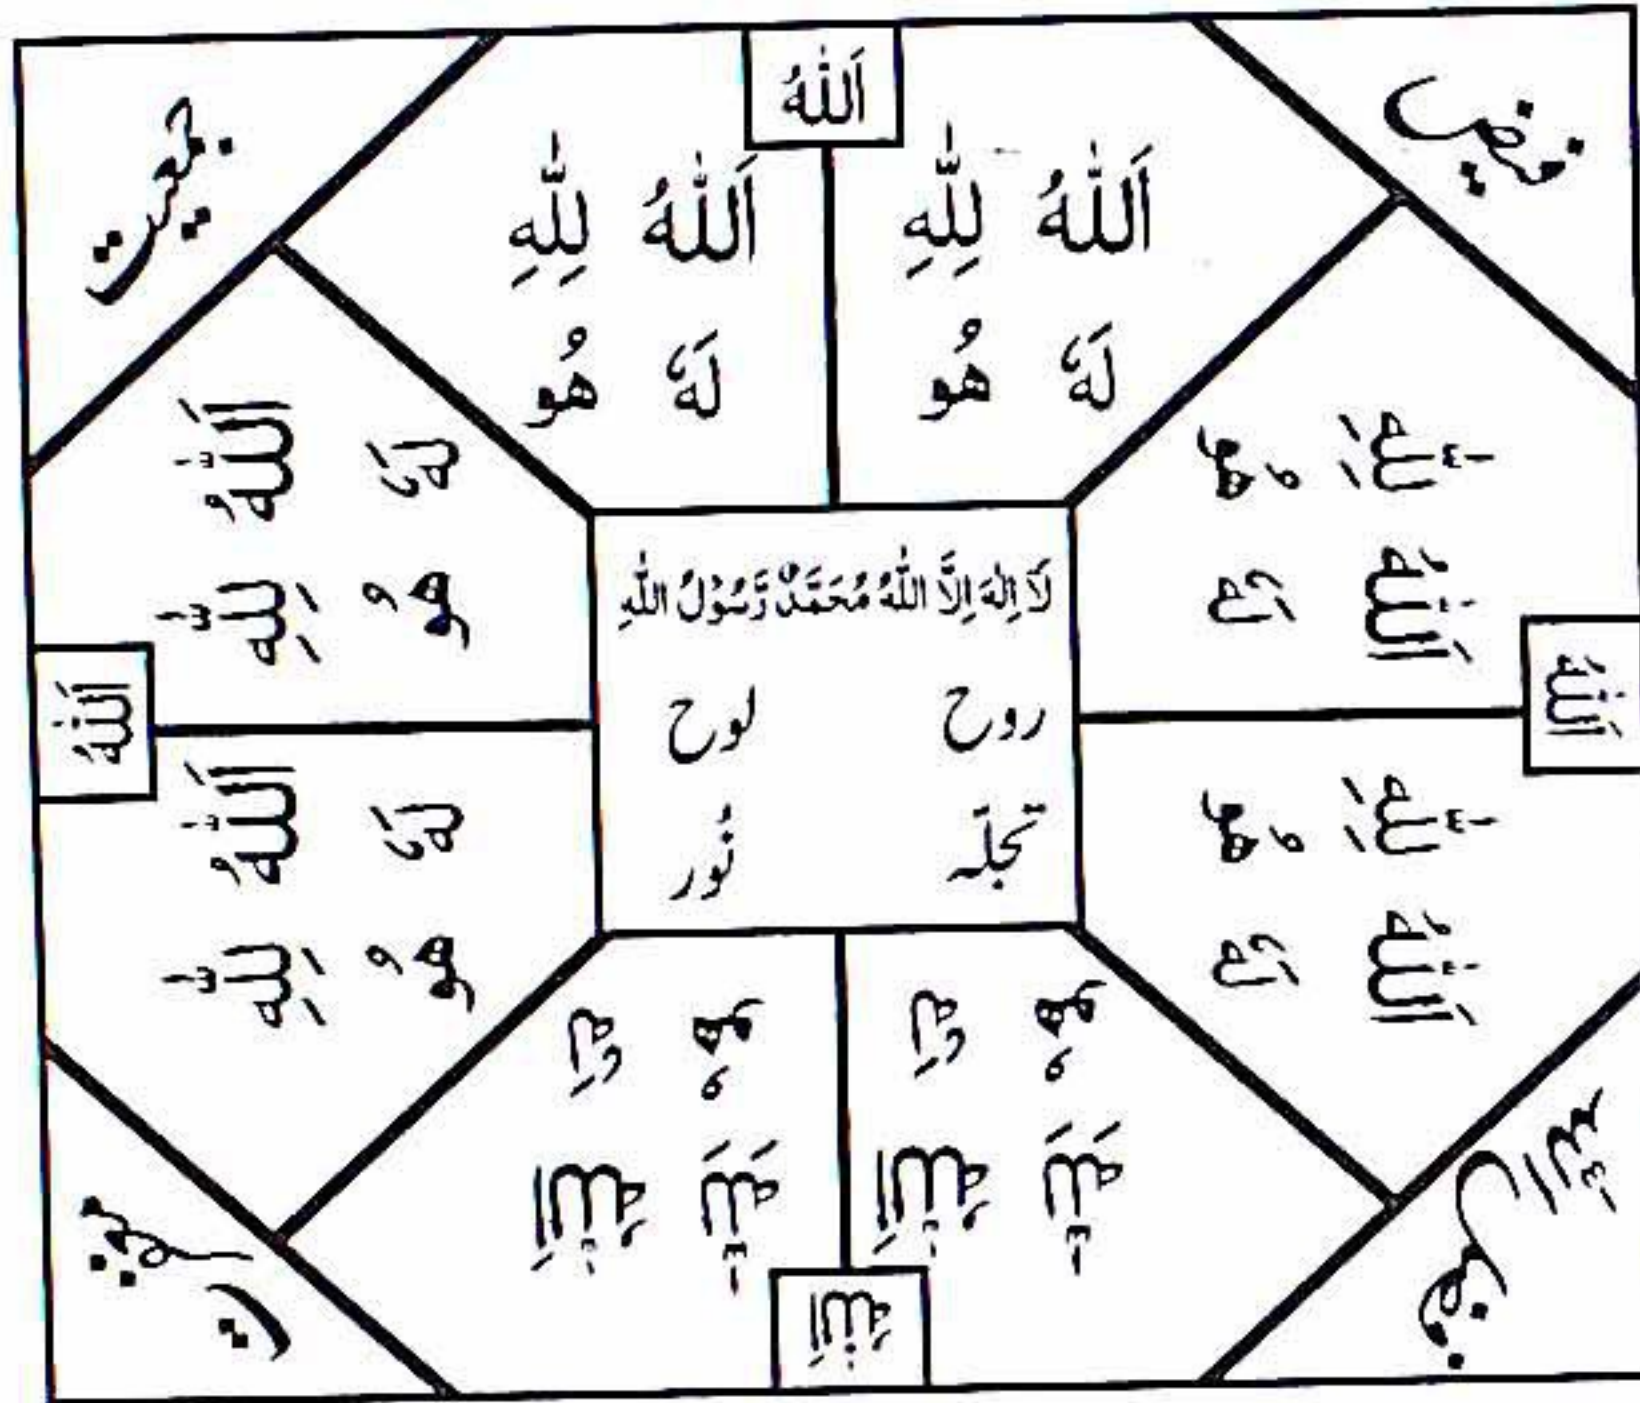 جمعیت
اَللّٰهُ
فیض
اَللّٰهُ لِلّٰهِ
لَهٗ هُو
اَللّٰهُ لِلّٰهِ
لَهٗ هُو
اَللّٰهُ لِلّٰهِ
لَهٗ هُو
اَللّٰهُ لِلّٰهِ
لَهٗ هُو
لَا اِلٰهَ اِلَّا اللّٰهُ مُحَمَّدٌ رَّسُوْلُ اللّٰهِ
روح لوح
تجلّہ نُور
اَللّٰهُ
اَللّٰهُ
اَللّٰهُ لِلّٰهِ
لَهٗ هُو
اَللّٰهُ لِلّٰهِ
لَهٗ هُو
اَللّٰهُ لِلّٰهِ
لَهٗ هُو
اَللّٰهُ لِلّٰهِ
لَهٗ هُو
اَللّٰهُ